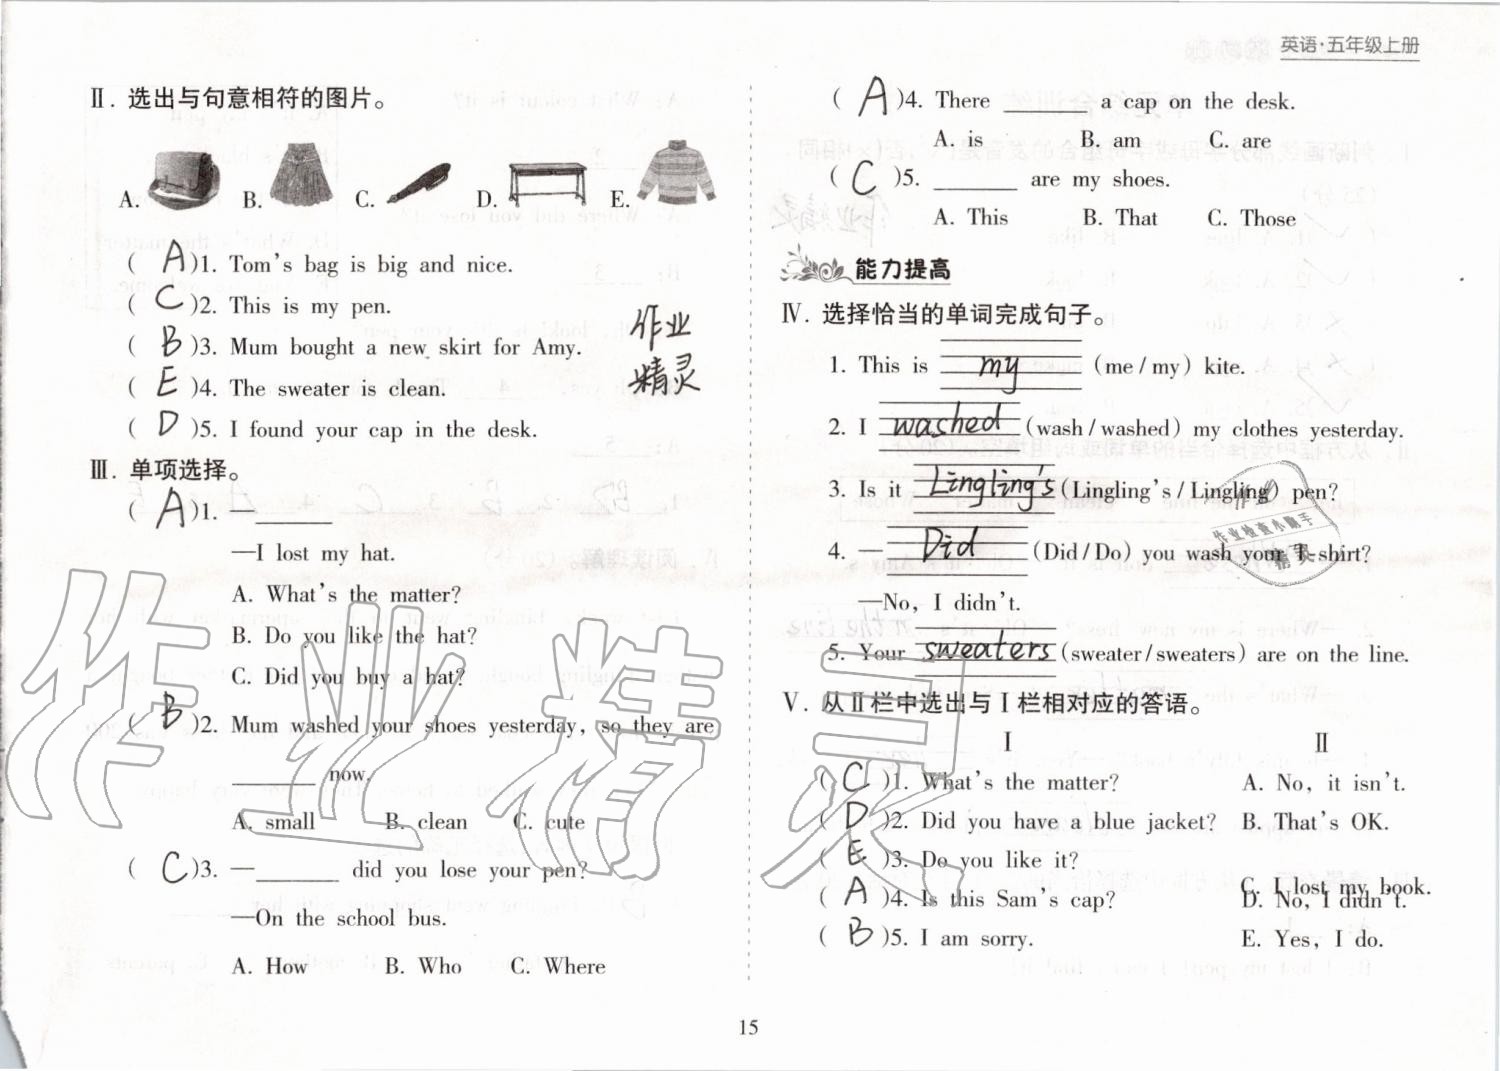 英语·五年级上册
Ⅱ. 选出与句意相符的图片。
A. B. C. D. E.
( A )1. Tom's bag is big and nice.
( C )2. This is my pen.
( B )3. Mum bought a new skirt for Amy.
( E )4. The sweater is clean.
( D )5. I found your cap in the desk.
作业
精灵
Ⅲ. 单项选择。
( A )1. ______
—I lost my hat.
A. What's the matter?
B. Do you like the hat?
C. Did you buy a hat?
( B )2. Mum washed your shoes yesterday, so they are
______ now.
A. small B. clean C. cute
( C )3. —______ did you lose your pen?
—On the school bus.
A. How B. Who C. Where
( A )4. There ______ a cap on the desk.
A. is B. am C. are
( C )5. ______ are my shoes.
A. This B. That C. Those
能力提高
Ⅳ. 选择恰当的单词完成句子。
1. This is my (me/my) kite.
2. I washed (wash/washed) my clothes yesterday.
3. Is it Lingling's (Lingling's/Lingling) pen?
4. —Did (Did/Do) you wash your T-shirt?
—No, I didn't.
5. Your sweaters (sweater/sweaters) are on the line.
Ⅴ. 从Ⅱ栏中选出与Ⅰ栏相对应的答语。
Ⅰ Ⅱ
( C )1. What's the matter? A. No, it isn't.
( D )2. Did you have a blue jacket? B. That's OK.
( E )3. Do you like it?
C. I lost my book.
( A )4. Is this Sam's cap? D. No, I didn't.
( B )5. I am sorry. E. Yes, I do.
作业精灵
作业检查小助手
15